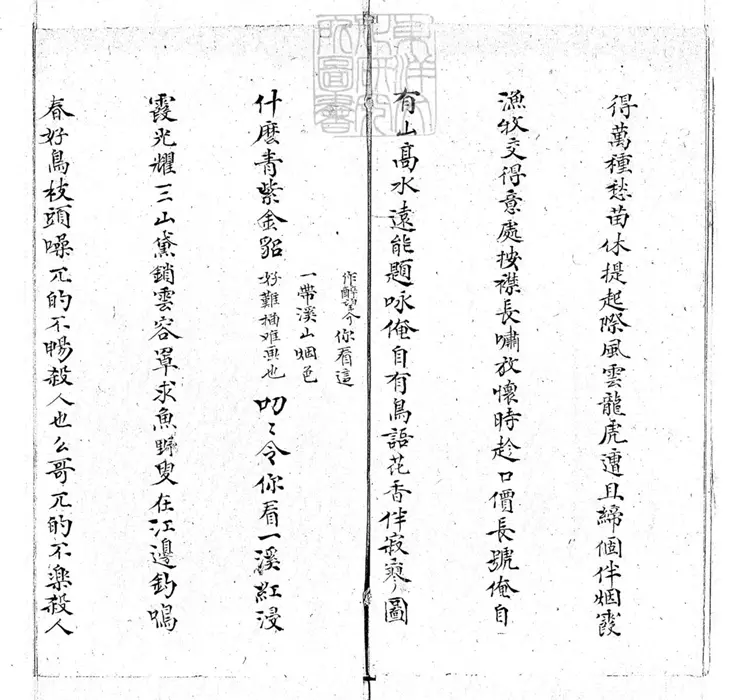 得萬種愁苗休提起際風雲龍虎遭且締個伴烟霞
漁牧交得意處按襟長嘯放懷時趁口價長號俺自
有山高水遠能題咏俺自有鳥語花香伴寂寥圖
什麽青紫金貂
作醉望介你看這
一帶溪山烟色
好難描难画也
叨〻令你看一溪紅浸
霞光耀三山黛鎖雲容罩求魚野叟在江邊釣鳴
春好鳥枝頭噪兀的不暢殺人也么哥兀的不樂殺人
東洋文
化研究
所圖書